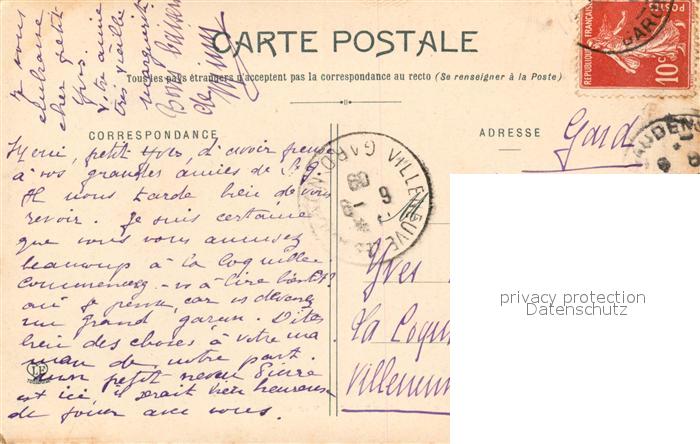 CARTE POSTALE
Tous les pays étrangers n'acceptent pas la correspondance au recto (Se renseigner à la Poste)
CORRESPONDANCE
ADRESSE
REPUBLIQUE FRANÇAISE
POSTES
10c
VILLENEUVE
GARD
Gard
Merci, petit Yves, d'avoir pensé
à vos grandes amies de
Il nous tarde bien de vous
revoir. Je suis certaine
que vous vous amusez
beaucoup à la Coquille.
commencez-vs à lire bientôt?
oui je pense, car vs devenez
un grand garçon. Dites
bien des choses à votre ma
man de notre part.
mon petit neveu Pierre
est ici, il serait bien heureux
de jouer avec vous.
Je vous
embrasse
cher petit
Yves.
Votre amie
très vieille
Marguerite
Bons baisers
de
Yves
La Coqu
Villeneuv
LF
privacy protection
Datenschutz